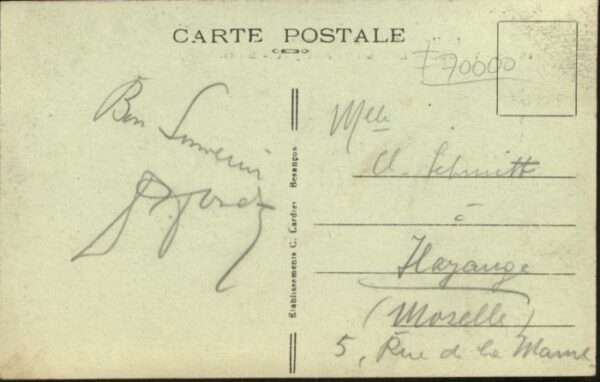 CARTE POSTALE
70000
Bon Souvenir
Etablissements C. Lardier Besançon
Mlle
Cl. Schmitt
à
Hayange
(Moselle)
5, Rue de la Marne